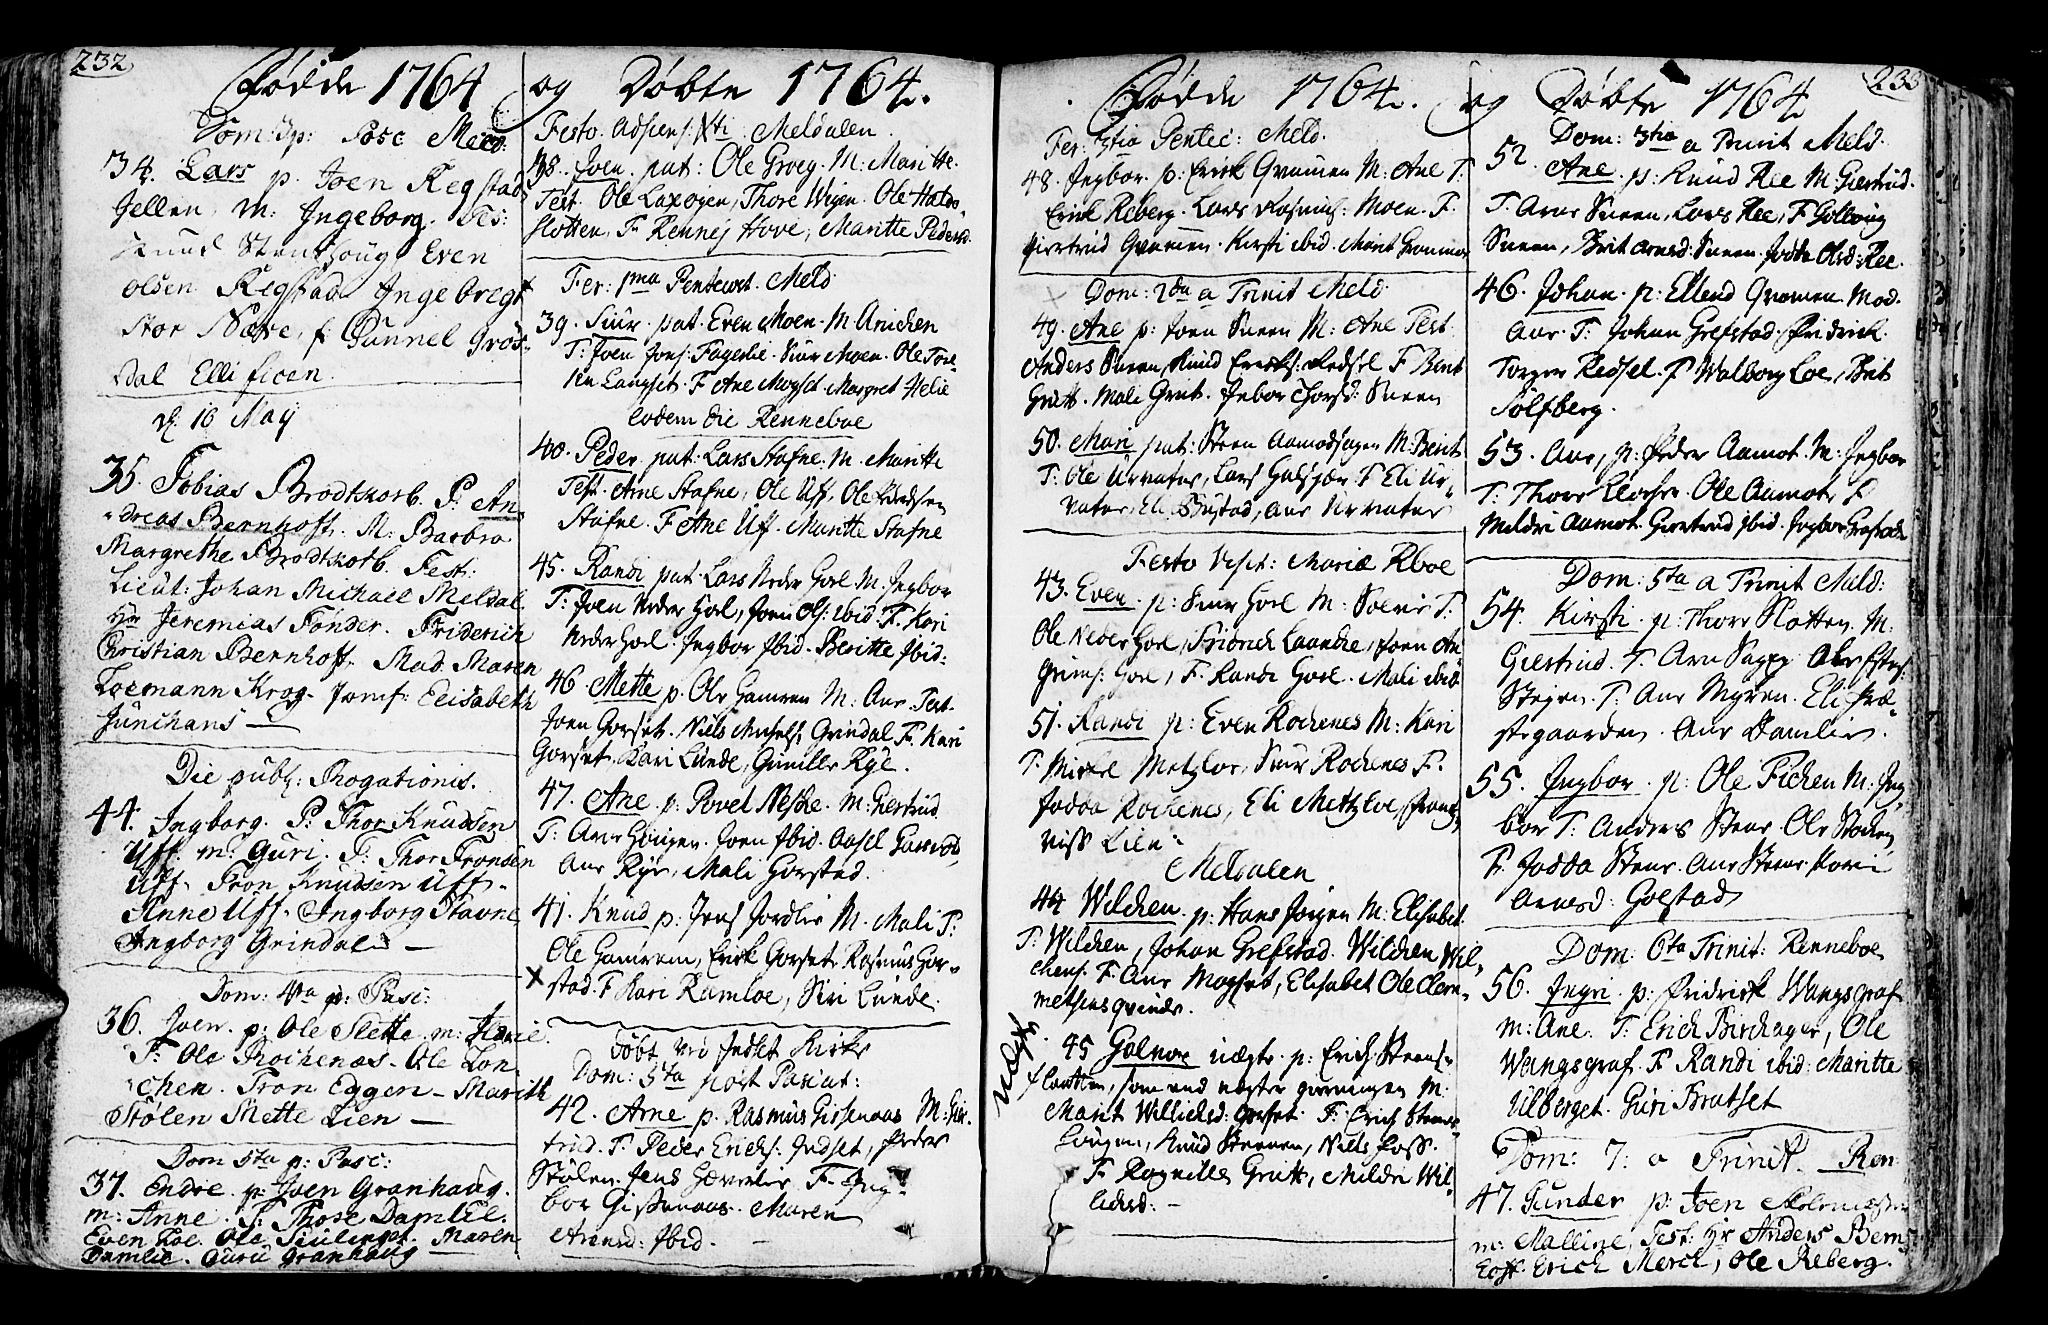 232
Fødde 1764
Dom: 3 p: Pasc
34. Lars p. Joen Regstad
Jellen, m: Ingeborg. Tes:
Knud Stenthoug Even
olsen Regstad Ingebregt
Stor Næve, f: Gunnel Grös-
dal Elli ficen.
d: 16 May
35. Tobias Brodtkorb. P: An
dreas Bernhoft. M: Barbra
Margrethe Brodtkorb. Test:
Lieut: Johan Michael Meldal
Hr Jeremias Tønder. Friderich
Christian Bernhoft. Mad. Maren
Loemann Krog. Jomf: Elisabeth
Junchans
Die publ: Rogationis.
44. Ingborg. P: Thor Knudsen
Uff. m: Guri. T: Thor Tronsen
Uff. Tron Knudsen Uff.
Anne Uff. Ingborg Stavne
Ingborg Grindal
Dom: 4ta p: Pasc:
36. Joen. p: Ole Slette. m:
T: Ole Rochenæs. Ole Lon
chen. Tron Eggen. Marith
Stölen Mette Lien
Dom 5ta p: Pasc:
37. Endre. p: Joen Granhaug.
m: Anne. T: Thore Damlie.
Even Loe. Ole Maren
Damlie. Guru Granhaug
og Døbte 1764.
Festo Adscens: Xti Meldalen.
38. Joen. pat: Ole Groeg. M: Maritte.
Test. Ole Laxøgen, Thore Wigen. Ole Haldo
slotten. F. Rennej Hove, Maritte Pedersd.
Fer: 1ma Pentecost. Meld
39. Siur. pat. Even Moen. M. Anichen
T: Joen Jons: Fagerlie. Siur Moen. Ole Tore
sen Langset. F Ane Mogset. Margret Helie
Eodem die Renneboe
40. Peder. pat: Lars Stafne. M. Maritte
Test. Arne Stafne, Ole Uff, Ole Knudsen
Stafne. F Ane Uff. Maritte Stafne
45. Randi pat. Lars Neder Hoel M. Ingbor
T: Joen Neder Hoel, Joen Ols: ibid F. Kari
Neder Hoel. Ingbor Ibid. Beritte Ibid:
46. Mette p. Ole Gamrem M: Ane. Test.
Joen Gorset. Niels Michels: Grindal F. Kari
Gorset. Kari Lunde, Gunille Rye.
47. Ane. p: Povel Neske. M: Giertrud
T: Arne Hougen. Joen Ibid. Aasel
Ane Rye, Mali Gorstad.
41. Knud p: Jens Jordlie M. Mali T:
Ole Gamrem, Erick Gorset. Rasmus Gor-
stad. F Kari Ramloe, Siri Lunde.
Døbt ved Indset Kirke
Dom: 5ta post Pascat:
42. Arne p. Rasmus Gissenaas M: Gier
trud. T. Peder Erichs: Indset, Peder
Stölen. Jens Hævrelie F. Ing-
bor Gissenaas. Maren
Arensd: Ibid.
Fødde 1764.
Fer: 3tia Pentec: Meld.
48. Ingbor. p: Erick Qvamen M. Ane T.
Erick Reberg. Lars Rasmus: Moen. F.
Giertrud Qvamen. Kirsti ibid. Marit
Dom: 2da a Trinit Meld:
49. Ane p: Joen Sneen M: Ane Test
Anders Sneen, Knud Ericks: Redsel F Berit
Grutt. Mali Grut. Inbor Thorsd: Sneen
50. Mari, pat: Steen Aamodhagen M: Berit
T: Ole Urvatne, Lars F Eli Ur
vatne, Eli Bustad, Ane Urvatne
Festo Visit: Mariæ Rboe
43. Even. p: Siur Hoel M: Solvie T.
Ole Neder Hoel, Friderick Laandie, Joen An
grims: Hoel, F. Randi Hoel. Mali ibid
51. Randi p: Even Rochenes M: Kari
T. Mickel Metzloe, Siur Rochenes F.
Jodda Rochenes, Eli Metzloe,
niss Lien.
Meldalen
44 Wilchen. p: Hans Jørgen M: Elisabet
T: Wilchen, Johan Grefstad. Wilchen Wil-
chens. F: Ane Mogset, Elisabet Ole Clem-
metsens qvinde.
uægte
45 Golnoe uægte. p: Erich Steens-
Marit Willichsd: Gorset. F: Erich
Lougen, Knud Sneenen, Niels Foss.
F Rognilla Grutt, Mildri Wil-
lichsd:
og Døbte 1764
233
Dom: 3tia a Trinit Meld.
52. Ane. p: Knud Ree M: Giertrud.
T. Arne Sneen, Lars Ree, F Gollvig
Sneen, Brit Arnsd: Sneen. Jodda Olsd: Ree.
46. Johan. p: Ellend Qvamen Mod.
Ane. T: Johan Grefstad. Fridrick
Torger Redsel. F Walborg Loe, Brit
Solfberg.
53. Ane, p: Peder Aamot. M: Ingbor
T: Thore Ole Aamot. F
Mildri Aamot. Giertrud Ibid. Ingbor
Dom: 5ta a Trinit Meld:
54. Kirsti. p: Thore Slotten. M:
Giertrud. T. Arn Sagg.
F. Ane Myren. Eli Præ-
stegaarden. Ane Damlie.
55. Ingbor. p: Ole Fichen M: Ing
bor T: Anders Stene. Ole
F. Jodda Stene. Ane Stene. Kari
Arnesd: Golstad
Dom: 6ta Trinit: Renneboe
56. Ingri. p: Fridrick Wangsgraf
m: Ane. T: Erich Birchager, Ole
Wangsgraf. F Randi ibid: Maritte
Ulberget. Guri Brutset
Dom: 7: a Trinit. Ren
47. Gunder p: Joen
m: Malline, Test: Hr Anders Bern
hoff. Erich Merch, Ole Reberg.